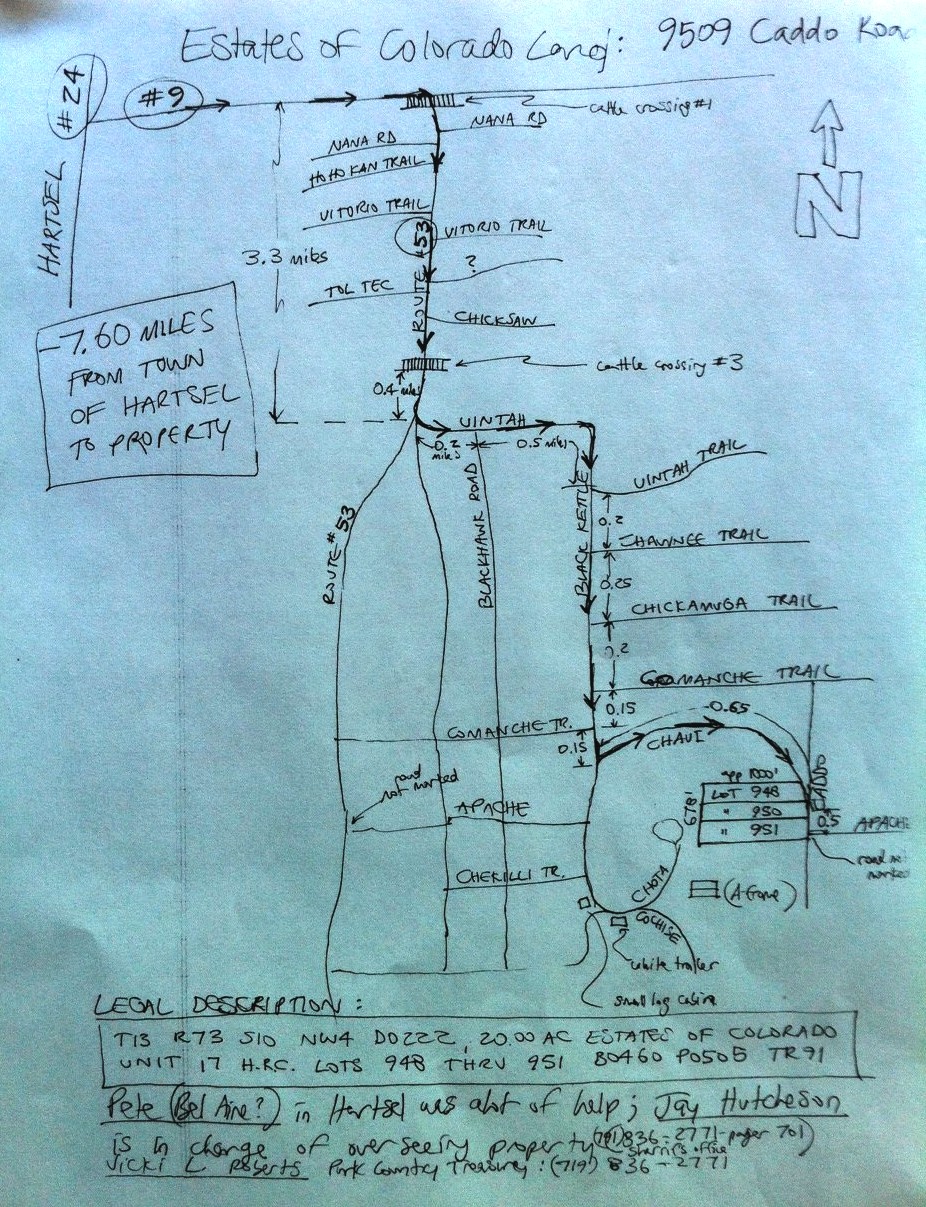 Estates of Colorado Land: 9509 Caddo Road
#24
#9
HARTSEL
cattle crossing #1
NANA RD
NANA RD
HOHOKAN TRAIL
VITORIO TRAIL
VITORIO TRAIL
ROUTE #53
3.3 miles
?
TOL TEC
CHICKSAW
N
cattle crossing #3
0.4 miles
-7.60 MILES
FROM TOWN
OF HARTSEL
TO PROPERTY
UINTAH
0.2 miles
0.5 miles
UINTAH TRAIL
BLACKHAWK ROAD
BLACK KETTLE
ROUTE #53
0.2
SHAWNEE TRAIL
0.25
CHICKAMUGA TRAIL
0.2
COMANCHE TRAIL
0.15
0.65
COMANCHE TR.
0.15
CHAUI
CADDO
road not marked
app 1000'
LOT 948
" 950
" 951
6781
0.5
APACHE
APACHE
road not marked
CHERILLI TR.
CHOTA
(A-frame)
COCHISE
white trailer
small log cabin
LEGAL DESCRIPTION:
T13 R73 S10 NW4 D0222, 20.00 AC ESTATES OF COLORADO
UNIT 17 H.R.C. LOTS 948 THRU 951 B0460 P0505 TR91
Pete (Bel Aire?) in Hartsel was alot of help; Jay Hutcheson
is in charge of overseeing property (701) 836-2771-pager 701)
Vicki L Roberts Park Country Treasury: (719) 836-2771